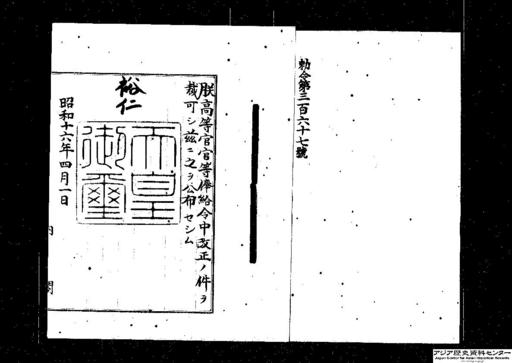 勅令第三百六十七號
朕高等官官等俸給令中改正ノ件ヲ
裁可シ茲ニ之ヲ公布セシム
裕仁
天皇
御璽
昭和十六年四月一日
内閣
アジア歴史資料センター
Japan Center for Asian Historical Records